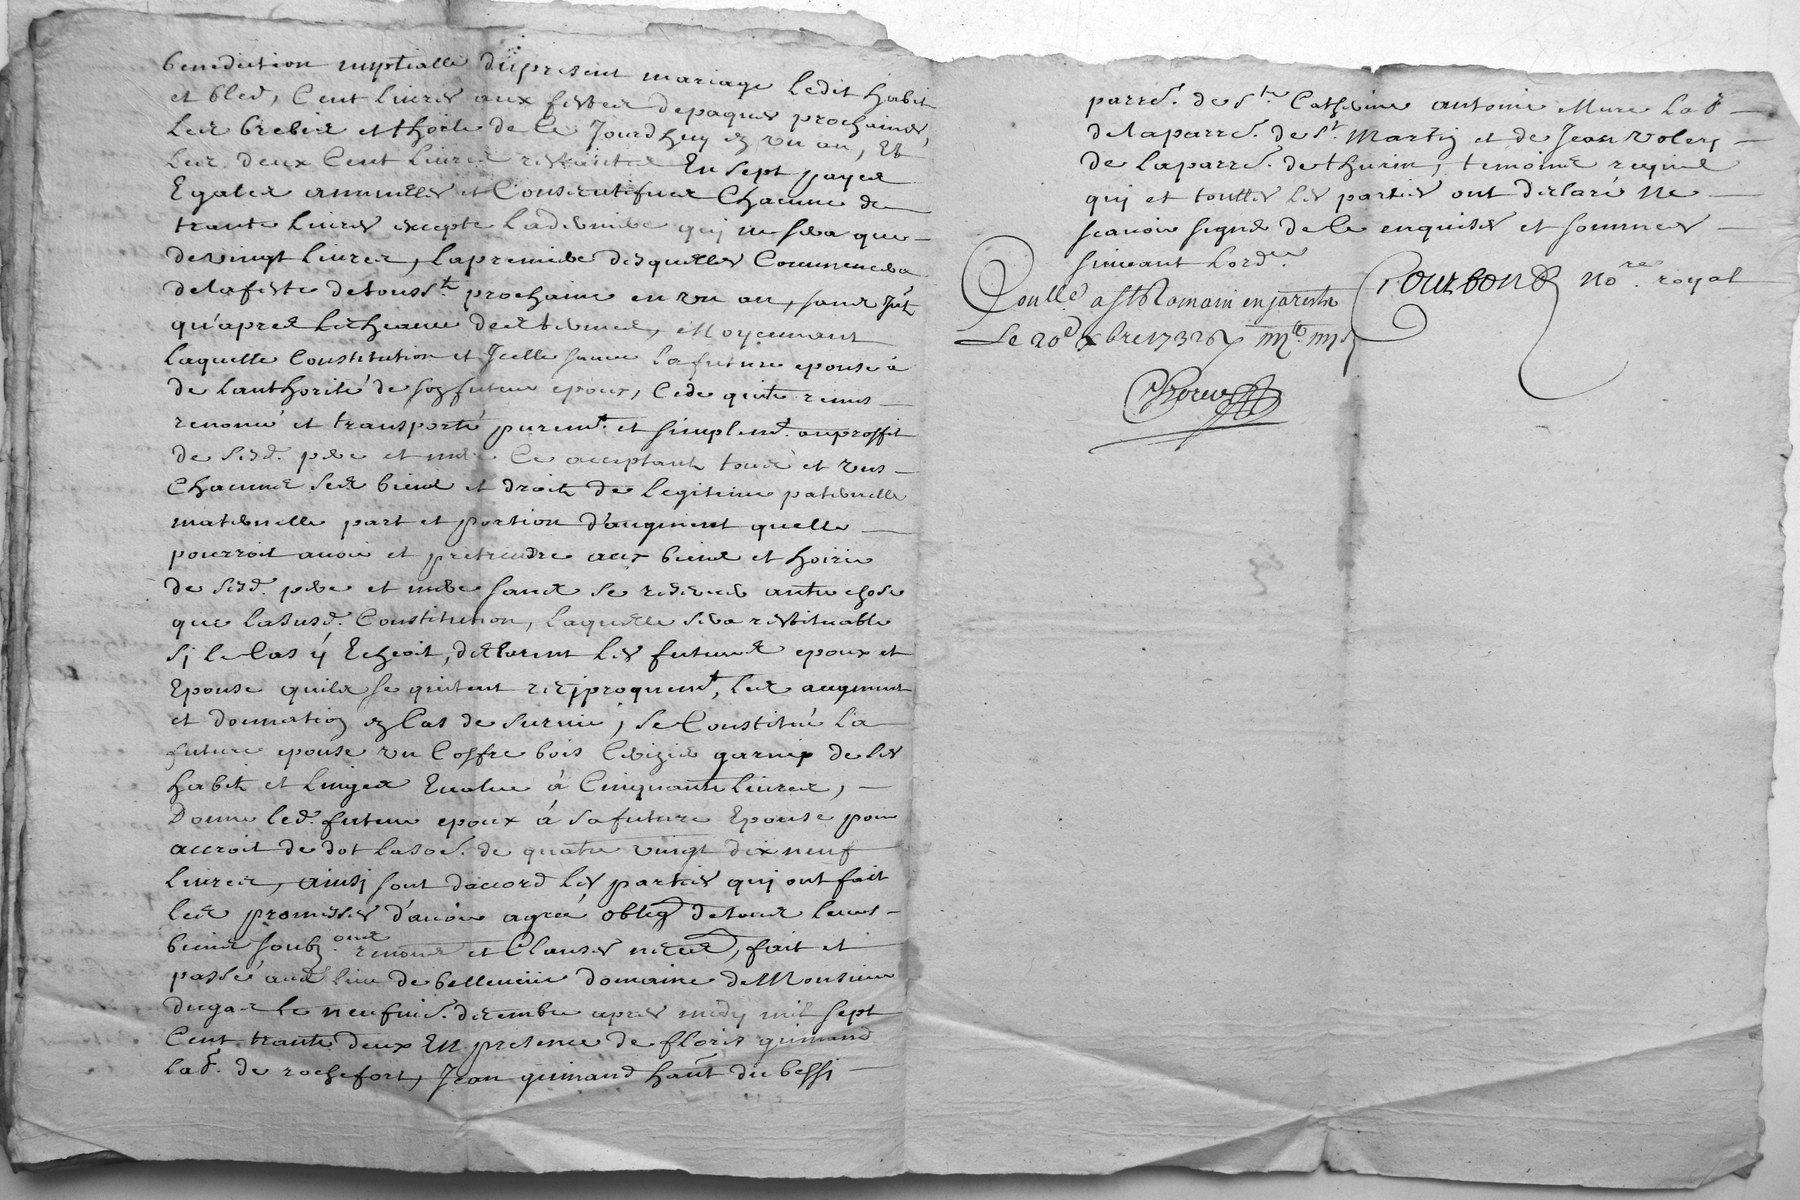 benediction nuptialle du present mariage ledit habit
et bled, Cent livres aux festes depaques prochaines
les brebis et thoile de ce Jourdhuy en un an, Et
les deux Cent livres restantes En sept payes
Egales annuelles et Consecutifves Chacune de
trante livres excepte laderniere quy ne sera que
devingt livres, lapremiere desquelles Commencera
delafeste detousst. prochaine en un an, sans Jnt.
qu'apres lecheance desd termes, Moyennant
laquelle Constitution et Jcelle sauve lafuture epouse à
de lauthorité de son futeur epoux, Cede quitte remis
renoncé et transporté puremt. et simplemt. auproffit
de sesd. pere et mere Ce acceptant tous et uns
Chacuns ses biens et droits de legitime paternelle
maternelle part et portion d'augment quelle
pourroit avoir et pretendre aux biens et hoirie
de sesd. pere et mere sans se reserver autre chose
que lasusd. Constitution, laquelle sera restituable
sj le Cas ÿ Echeoit, declarent les futeurs epoux et
Epouse quils se quitent reciproquemt, les augment
et donnation en Cas de survie, se Constitué la
future epouse un Coffre bois Cerizier garnis de ses
habits et linges Evalué à Cinquante livres,
Donne led. futeur epoux à sa future Epouse pour
accroit de dot la so. de quatre vingt dix neuf
livres, ainsj sont daccord les parties quj ont fait
les promesses d'avoir agreé oblig detous leurs
biens soubz.ons renonc et Clauses necres, fait et
passé aud lieu de bellevüe domaine deMonsieur
dugas le neufvie. decembre apres midy mil sept
Cent trante deux En presence de floris guinand
lab. de rochefort, Jean guinand habt du bessj
parre. de Ste. Catherine antoine Mure lab
delaparre. de St. Martin et de Jean Volery
de laparre. de thurin, temoins requis
quj et touttes les parties ont declaré Ne
scavoir signer de Ce enquises et sommees
suivant lorde.
Courbon No.re royal
Conllé a St Romain en jarest
Le 20e Xbre 1732